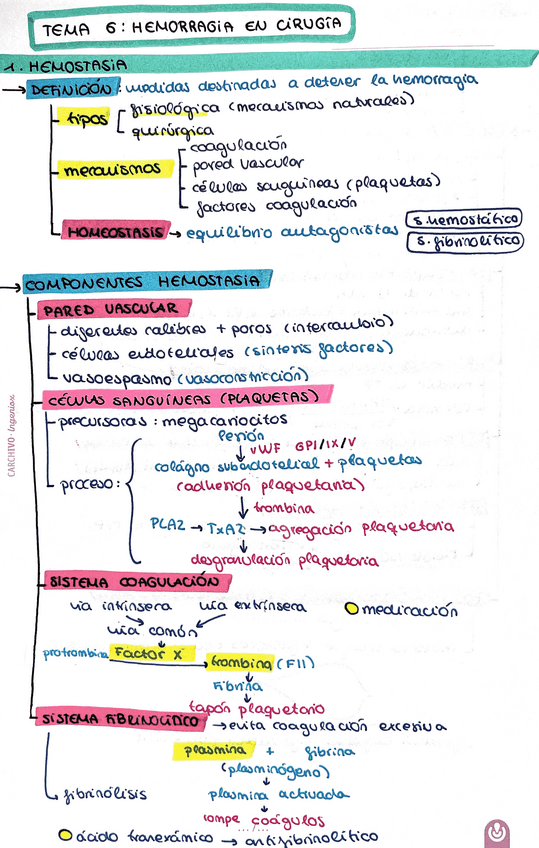 TEMA 6: HEMORRAGIA EN CIRUGÍA
1. HEMOSTASIA
→ DEFINICIÓN: medidas destinadas a detener la hemorragia
tipos
fisiológica (mecanismos naturales)
quirúrgica
mecanismos
coagulación
pared vascular
células sanguíneas (plaquetas)
factores coagulación
HOMEOSTASIS → equilibrio antagonistas
s. hemostático
s. fibrinolítico
→ COMPONENTES HEMOSTASIA
PARED VASCULAR
diferentes calibres + poros (intercambio)
células endoteliales (síntesis factores)
vasoespasmo (vasoconstricción)
CÉLULAS SANGUÍNEAS (PLAQUETAS)
precursoras: megacariocitos
proceso:
lesión
↓ vWF GPI/IX/V
colágno subendotelial + plaquetas
(adhesión plaquetaria)
↓ trombina
PLA2 → TxA2 → agregación plaquetaria
↓
desgranulación plaquetaria
SISTEMA COAGULACIÓN
vía intrínseca vía extrínseca
medicación
vía común
protrombina Factor X → trombina (FII)
↓
Fibrina
↓
tapón plaquetario
SISTEMA FIBRINOLÍTICO → evita coagulación excesiva
plasmina + fibrina
(plasminógeno)
↓
fibrinólisis
plasmina activada
↓
rompe coágulos
ácido tranexámico → antifibrinolítico
CARCHIVO·Ingenion